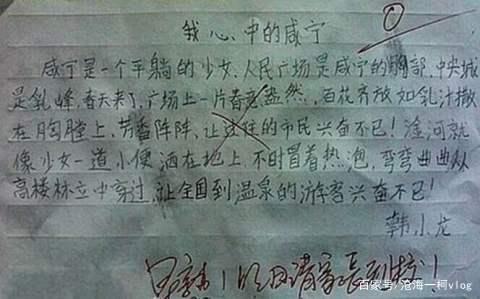 我心中的咸宁
0
咸宁是一个平躺的少女,人民广场是咸宁的胸部,中央城
是乳峰,春天来了,广场上一片春意盎然,百花齐放如乳汁撒
在胸膛上,芳香阵阵,让过往的市民兴奋不已!淦河就
像少女一道小便洒在地上,不时冒着热泡,弯弯曲曲从
高楼林立中穿过,让全国到温泉的游客兴奋不已!
韩小龙
!明日请家长到校!
百家号/沧海一柯vlog